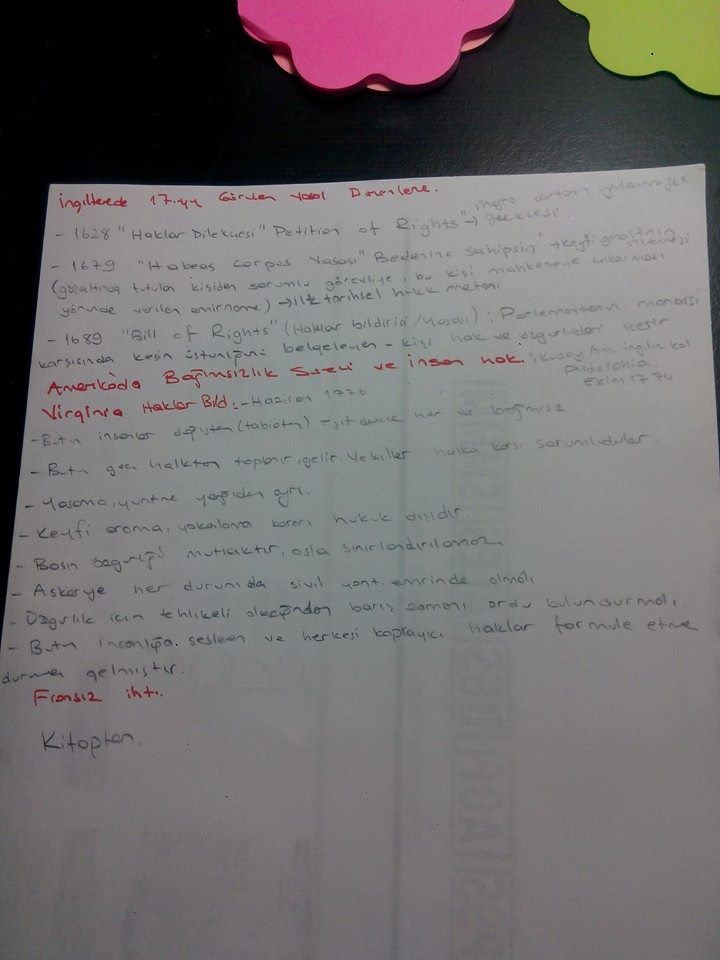 İngilterede 17.yy Görülen Yasal Düzenleme.
- 1628 "Haklar Dilekçesi" Petition of Rights" → gerekçesi.
- 1679 "Habeas Corpus Yasası" Bedenine sahipsin" → keyfi gözaltının önlenmesi
(gözaltında tutulan kişiden sorumlu görevliye, bu kişi mahkemeye çıkarması
yönünde verilen emirname) → ilk tarihsel hukuk metni
- 1689 "Bill of Rights" (Haklar bildirisi / Yasası) : Parlementonun
karşısında kesin üstünlüğünü belgeleyen - kişi hak ve özgürlükleri içerir.
Amerikada Bağımsızlık Süreci ve insan hak. : Kuzey Am. ingiliz kol
Philedelphia
Ekim 1774
Virginia Haklar Bild. - Haziran 1776
- Butn insanlar doğuştan (tabiatan) eşit derece hür ve bağımsız
- Butn guc halktan toplanır, gelir. Vekiller halka karşı sorumludular.
- Yasama, yurutme yargıdan ayrı.
- Keyfi arama, yakalama kararı hukuk dışıdır.
- Basın özgrlğü mutlaktır, asla sınırlandırılamaz
- Askerye her durumda sivil yont emrinde olmalı
- Özgurlik için tehlikeli olacağından barış zamanı ordu bulundurmalı.
- Butn insanlığa seslenen ve herkesi kapsayıcı haklar formule etme
durmna gelmiştir.
Fransız ihti.
Kitaptan.